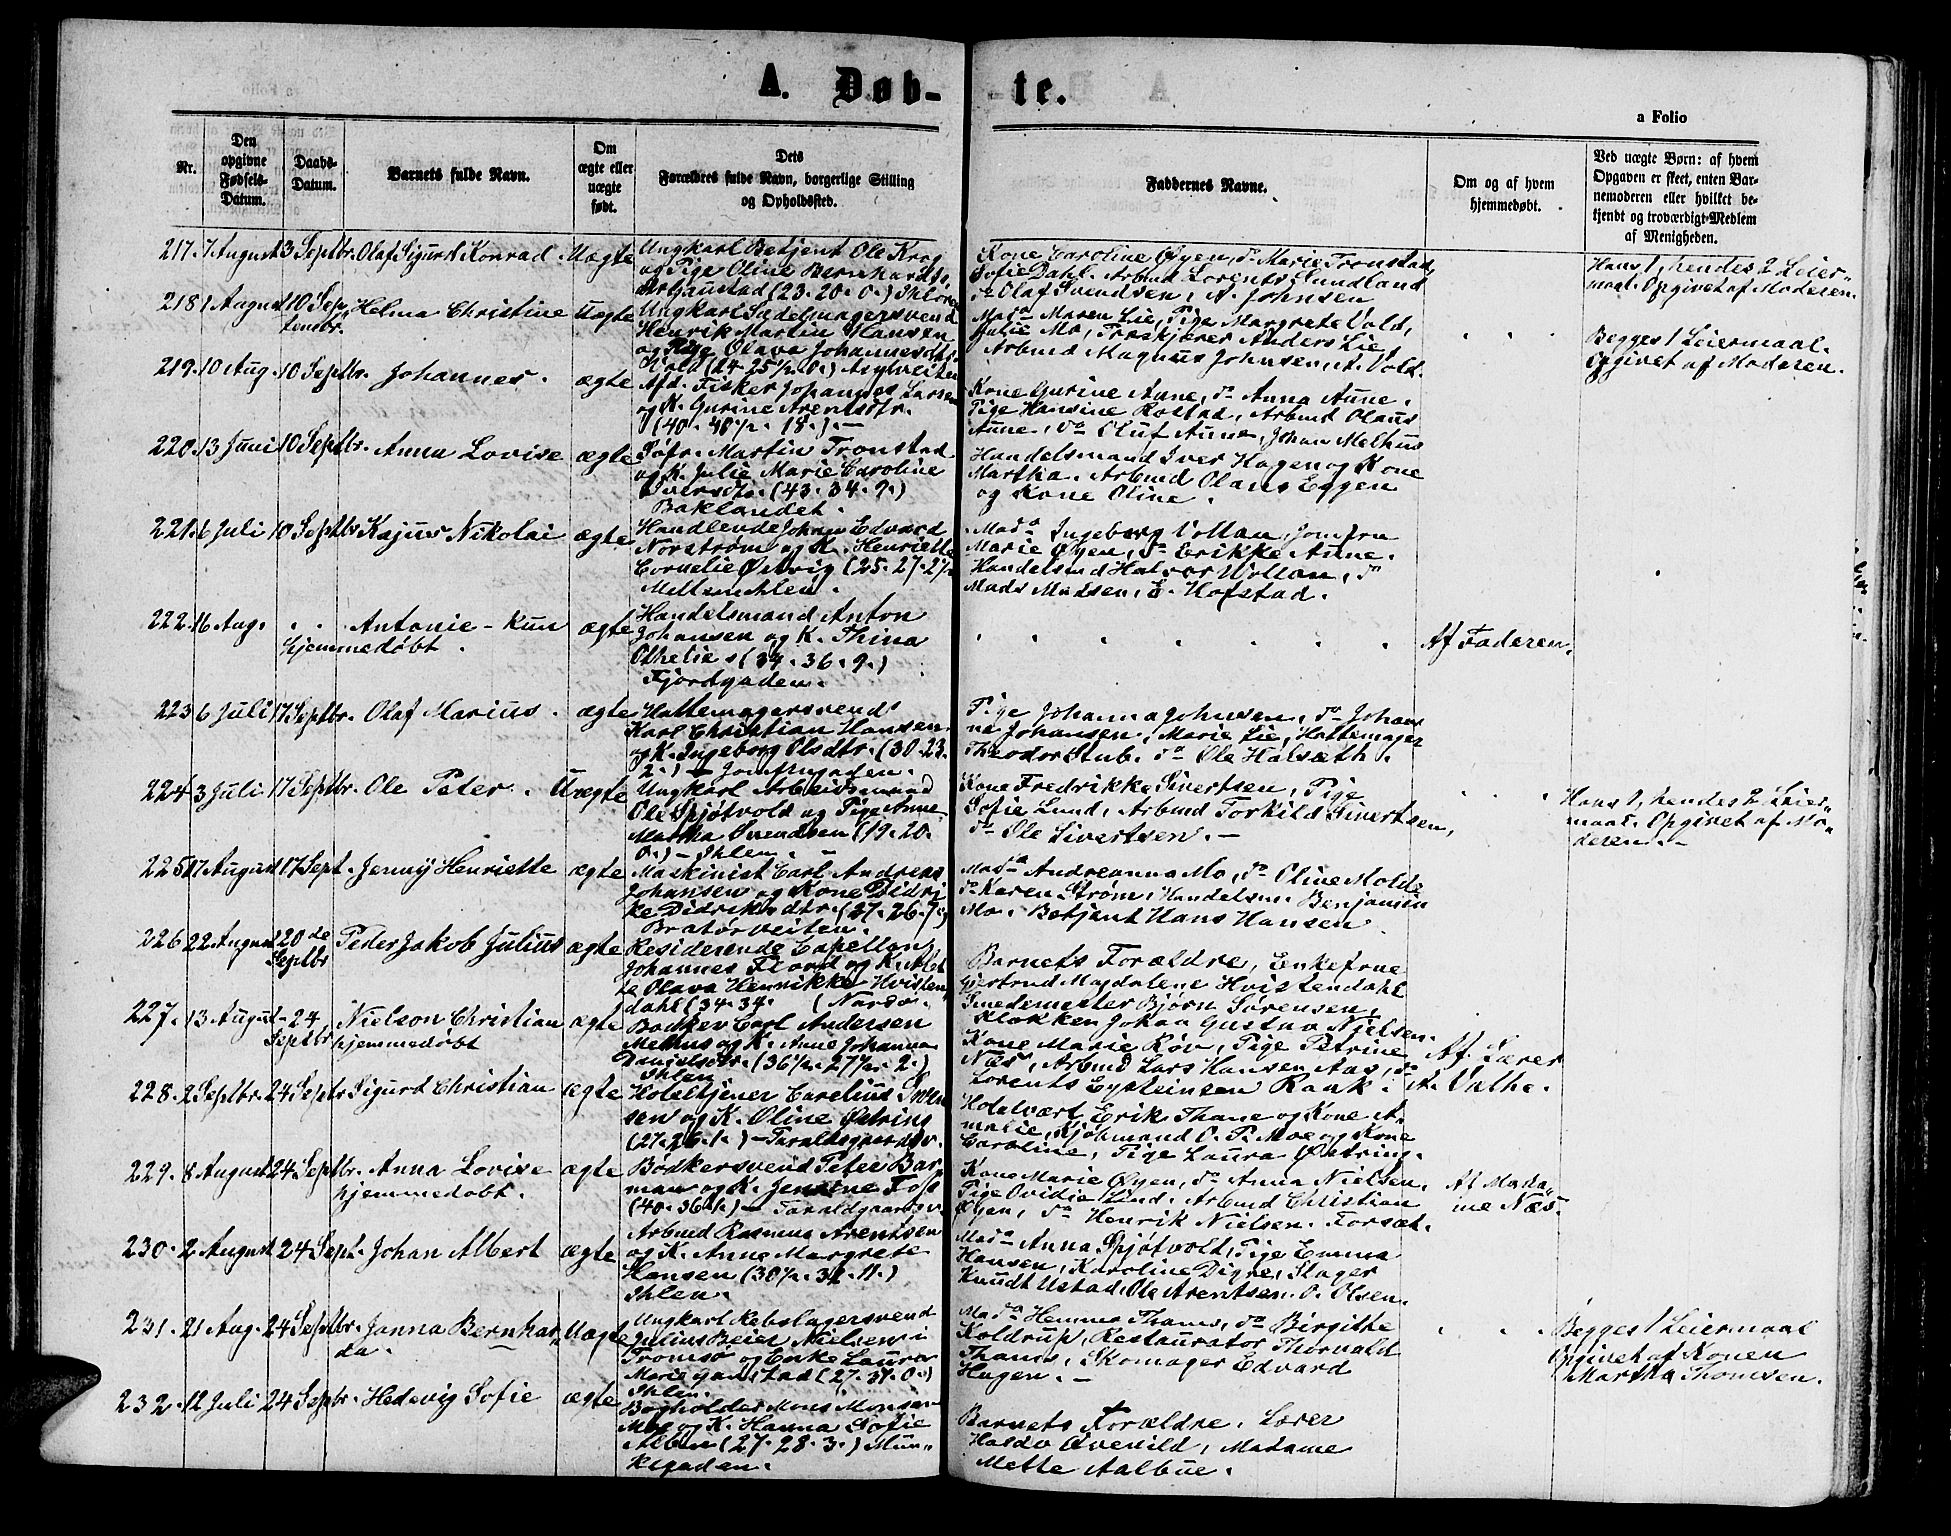 A. Døb-
te.
a Folio
Nr.
Den
opgivne
Fødsels-
Datum.
Daabs-
Datum.
Barnets fulde Navn.
Om
ægte eller
uægte
født.
Dets
Forældres fulde Navn, borgerlige Stilling
og Opholdssted.
Faddernes Navne.
Om og af hvem
hjemmedøbt.
Ved uægte Børn: af hvem
Opgaven er skeet, enten Bar-
nemoderen eller hvilket be-
kjendt og troværdigt Medlem
af Menigheden.
217. 7 August 3 Septbr. Olaf Sigurd Konrad. Uægte
Ungkarl Betjent Ole Krog
og Pige Oline Bernhardts.
Gaustad (23. 20. 0.) Ihlen
Kone Caroline Øyen, do Marie Tronstad,
Sofie Dahl. Arbmd Lorents Sundland
do Olaf Svendsen, A. Johnsen
Hans 1, hendes 2 Leier-
maal. Opgivet af Moderen.
218. 1 August 10 Sep-
tembr. Helma Christine Uægte
Ungkarl Sadelmagersvend
Henrik Martin Hansen
og Pige Olava Johannesdtr.
Vold (24. 25½. 0.) Asylveiten
Mada Maren Lie, Pige Margrete Vold,
Julie Mo, Træskjærer Anders Lie,
Arbmd Magnus Johnsen, A. Vold.
Begges 1 Leiermaal.
Opgivet af Moderen.
219. 10 Aug. 10 Septbr. Johannes. ægte
Afd. Fisker Johannes Larsen
og K. Gurine Arentsdtr.
(40. 40½. 18.) —
Kone Gurine Aune, do Anna Aune.
Pige Hansine Rostad, Arbmd Olaus
Aune, do Oluf Aune, Johan Melhus
220. 13 Juni 10 Septbr. Anna Lovise ægte
Søfr. Martin Tronstad
og K. Julie Marie Caroline
Iversdtr. (43. 34. 9.)
Baklandet.
Handelsmand Iver Hagen og Kone
Martha. Arbmd Olaus Eggen
og Kone Oline.
221. 6 Juli 10 Septbr Kajus Nikolai ægte
Handlende Johan Edvard
Norstrøm og K. Henriette
Cornelie Østvig (25. 27. 2½
Mellemihlen.
Mada Ingeborg Vollan, Jomfru
Marie Øyen, do Erikke Aune.
Handelsmd Halvor Wollan, do
Mads Madsen, E. Hofstad.
222. 16 Aug. Antonie - kun
hjemmedøbt. ægte
Handelsmand Anton
Johansen og K. Thina
Othelie (34. 36. 9.)
Fjordgaden.
Af Faderen.
223 6 Juli 17 Septbr. Olaf Marius. ægte
Hattemagersvend
Karl Christian Hansen
og K. Ingeborg Olsdtr. (30. 23.
2.) — Jomfrugaden.
Pige Johanna Johnsen, do Johan-
ne Johansen, Marie Lie, Hattemager
Theodor Stub. do Ole Halsæth.
224 3 Juli 17 Septbr. Ole Peter. Uægte
Ungkarl Arbeidsmand
Ole Spjøtvold og Pige Anne
Martha Svendsen (19. 20.
0.) — Ihlen. —
Kone Fredrikke Sivertsen, Pige
Sofie Lund, Arbmd Torkild Sivertsen,
do Ole Sivertsen. —
Hans 1, hendes 2 Leier-
maal. Opgivet af Mo-
deren. —
225 17 August 17 Sept. Jenny Henriette ægte
Maskinist Carl Andreas
Johansen og Kone Didri-
ke Didriksdtr. (27. 26. 7.)
Bratørveiten.
Mada Andreanna Mo, do Oline Molde
do Karen Strøm, Handelsm. Benjamin
Mo. Betjent Hans Hansen
226 22 August 20de
Septbr Peder Jakob Julius ægte
Residerende Capellan
Johannes Fiord og K. Alet-
te Olava Henrikke Hvisten-
dahl (34. 34. (Nardo.
Barnets Forældre, Enkefrue
Gjertrud Magdalene Hvistendahl
Smedemester Bjørn Sørensen,
Klokker Johan Gustav Nielsen.
227. 13 August - 24
Septbr Nielson Christian
hjemmedøbt ægte
Bødker Carl Andersen
Melhus og K. Anne Johanna
Danielsdtr. (36½. 27½. 2.)
Ihlen
Kone Marie Røv, Pige Petrine
Næs, Arbmd Lars Hansen Aas, do
Lorents Eysteinsen Raak i A.
Af Lærer
Valhe.
228. 2 Septbr. 24 Septbr Sigurd Christian ægte
Hoteltjener Carelius Sven-
sen og K. Oline Østring
(27. 26. 1.) — Taraldsgaardsv.
Hotelvært Erik Thane og Kone A-
malie, Kjøbmand O. P. Moe og Kone
Caroline, Pige Laura Østring.
229. 8 August 24 Septbr. Anna Lovise
hjemmedøbt. ægte
Bødkersvend Peter Bar-
man og K. Jensine Foss
(40. 36. 1.) — Taraldgaardsv.
Kone Marie Øyen, do Anna Nielsen,
Pige Ovidia Lind. Arbmd Christian
Øyen, do Henrik Nielsen. Forsæt.
Af Mada-
me Næs.
230. 2 August 24 Sept. Johan Albert ægte
Arbmd Rasmus Arentsen
og K. Anne Margrete
Hansen (30½. 34. 11.)
Ihlen.
Mada Anna Spjøtvold, Pige Emma
Hansen, Karoline Digre, Slager
Knudt Ustad, Ole Arentsen. O. Olsen.
231. 21 Aug. 24 Septbr. Janna Bernhar-
da. Uægte
Ungkarl Rebslagersvend
Julius Beier Nielsen i
Tromsø og Enke Laura
Marie Gaustad (27. 37. 0.)
Ihlen.
Mada Hemma Thams, do Birgitte
Koldrup, Restauratør Thorvald
Thams, Skomager Edvard
Hagen. —
Begges 1 Leiermaal
Opgivet af Konen
Martha Thomsen.
232. 12 Juli 24 Septbr. Hedevig Sofie ægte
Bogholder Mons Monsen
Moe og K. Hanna Sofie
Albin (27. 28. 3.) Mun-
kegaden.
Barnets Forældre, Lærer
Haldo Øvevild, Madame
Mette Aalbue.